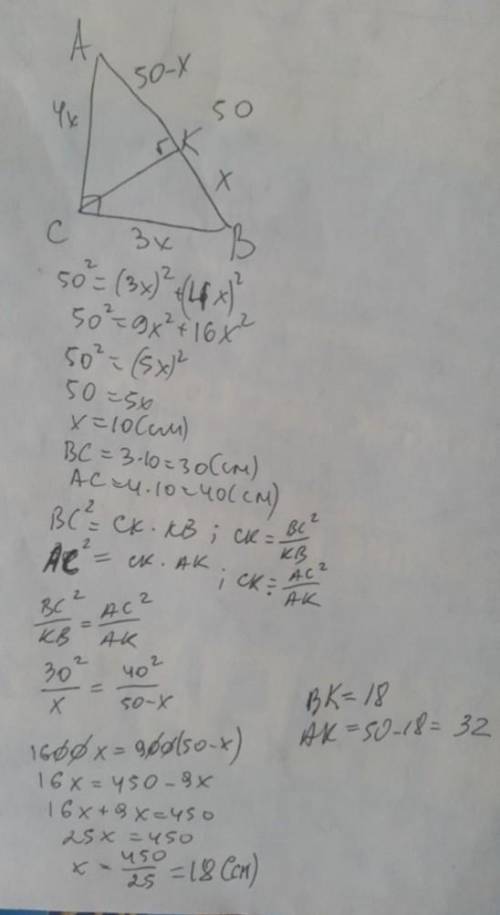 A
50-x
50
4x
K
x
C
3x
B
50² = (3x)² + (4x)²
50² = 9x² + 16x²
50² = (5x)²
50 = 5x
x = 10 (см)
BC = 3·10 = 30 (см)
AC = 4·10 = 40 (см)
BC² = CK · KB ; CK = BC²/KB
AC² = CK · AK ; CK = AC²/AK
BC²/KB = AC²/AK
30²/x = 40²/50-x
BK = 18
AK = 50-18 = 32
1600x = 900(50-x)
16x = 450 - 9x
16x + 9x = 450
25x = 450
x = 450/25 = 18 (см)